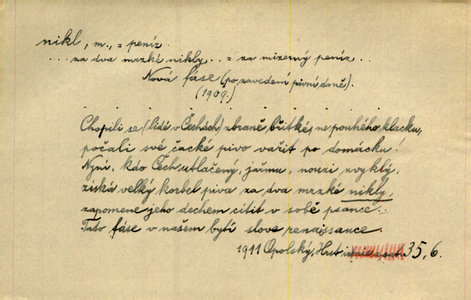 nikl, m., = peníz.
...za dva mrzké nikly... = za mizerný peníz...
Nová fáse (po zavedení pivní daně).
(1909.)
Chopili se (lidé v Čechách) zbraně břitké, ne pouhého klacku,
počali své čacké pivo vařit po domácku!
Nyní, kdo Čech utlačený, jařmu, nouzi zvyklý,
získá velký korbel piva za dva mrzké nikly,
zapomene jeho dechem cítit v sobě psance...
Tato fáse v našem bytí slove renaissance.
1911 Opolský, 35, 6.